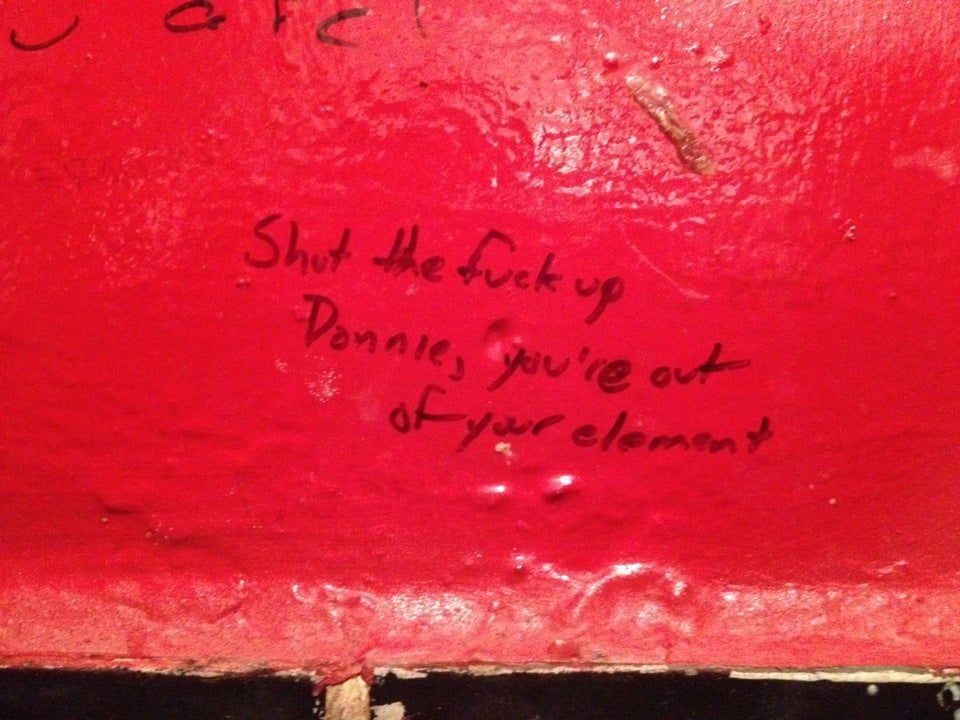 Shut the fuck up
Donnie, you're out
of your element